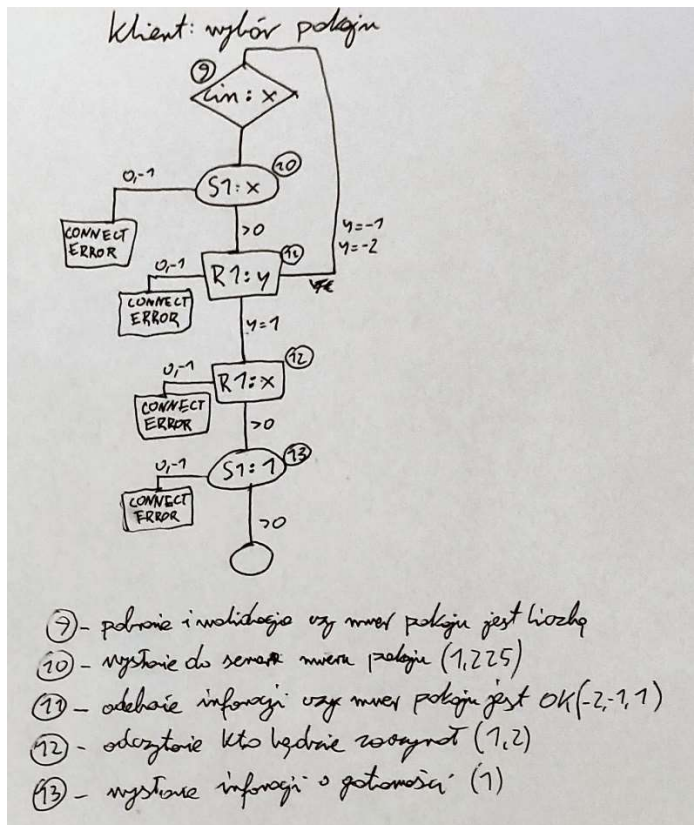 Klient: wybór pokoju
9
Cin: x
10
0,-1
S1: x
CONNECT
ERROR
>0
y=-1
y=-2
11
0,-1
R1: y
CONNECT
ERROR
y=1
12
0,-1
R1: x
CONNECT
ERROR
>0
13
0,-1
S1: 1
CONNECT
ERROR
>0
9 - pobranie i walidacja czy numer pokoju jest liczbą
10 - wysłanie do serwera numeru pokoju (1,225)
11 - odebranie informacji czy numer pokoju jest OK(-2,-1,1)
12 - odczytanie kto będzie zaczynał (1,2)
13 - wysłanie informacji o gotowości (1)